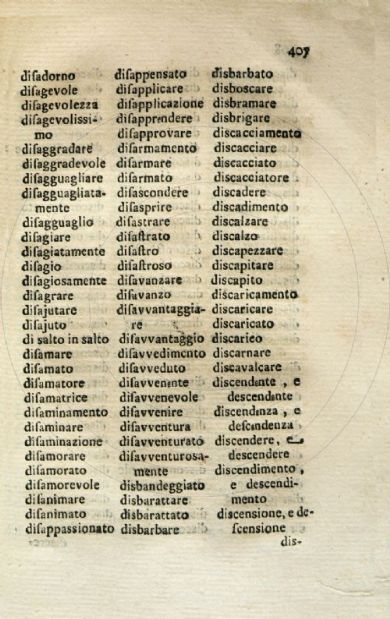 407
diſadorno
diſagevole
diſagevolezza
diſagevoliſſi-
mo
diſaggradare
diſaggradevole
diſagguagliare
diſagguagliata-
mente
diſagguaglio
diſagiare
diſagiatamente
diſagio
diſagioſamente
diſagrare
diſajutare
diſajuto
di salto in salto
diſamare
diſamato
diſamatore
diſamatrice
diſaminamento
diſaminare
diſaminazione
diſamorare
diſamorato
diſamorevole
diſanimare
diſanimato
diſappassionato
diſappensato
diſapplicare
diſapplicazione
diſapprendere
diſapprovare
diſarmamento
diſarmare
diſarmato
diſascondere
diſasprire
diſastrare
diſaſtrato
diſaſtro
diſastroso
diſavanzare
diſavanzo
diſavvantaggia-
re
diſavvantaggio
diſavvedimento
diſavveduto
diſavvenente
diſavvenevole
diſavvenire
diſavventura
diſavventurato
diſavventurosa-
mente
disbandeggiato
disbarattare
disbarattato
disbarbare
disbarbato
disboscare
disbramare
disbrigare
discacciamento
discacciare
discacciato
discacciatore
discadere
discadimento
discalzare
discalzo
discapezzare
discapitare
discapito
discaricamento
discaricare
discaricato
discarico
discarnare
discavalcare
discendente , e
descendente
discendenza , e
deſcendenza
discendere, e
descendere
discendimento ,
e descendi-
mento
discensione, e de-
ſcensione
dis-